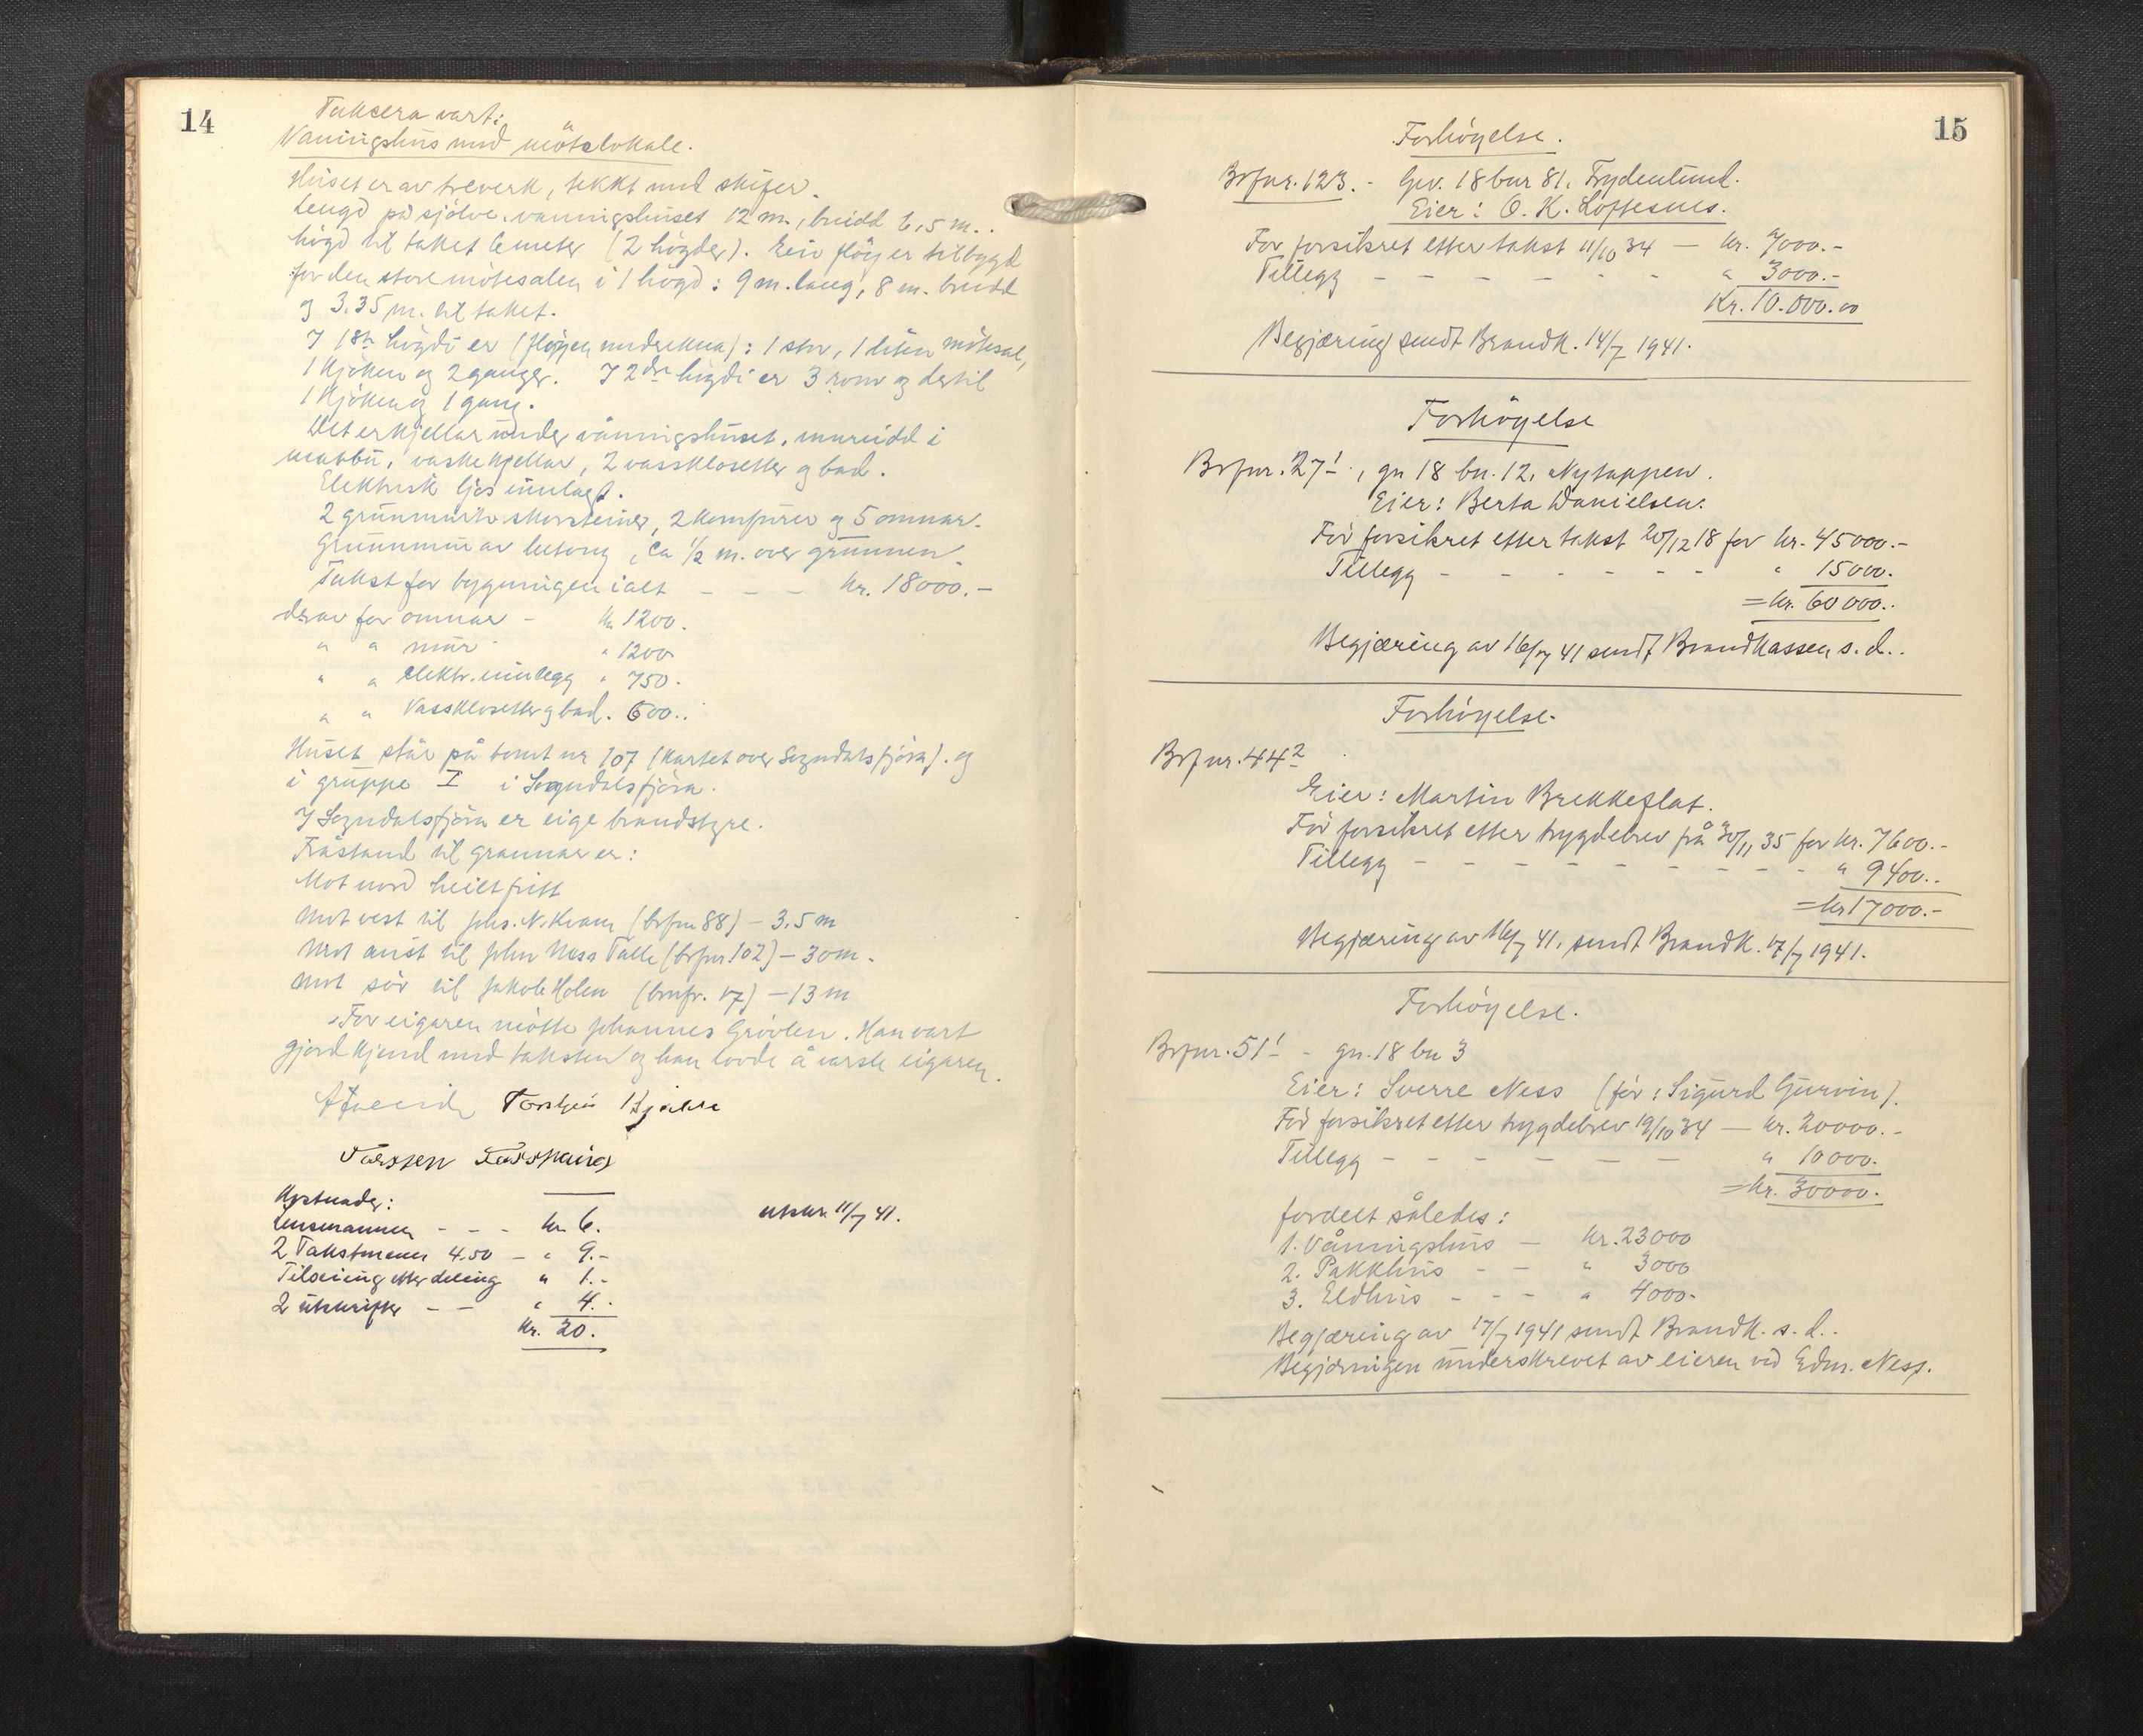 14
Taksera vart:
Våningshus med møtelokale.
Huset er av treverk, tekkt med skifer.
Lengd på sjølve våningshuset 12 m., breidd 6,5 m..
høgd til taket 6 meter (2 høgder). Ein fløy er tilbygd
for den store møtesalen i 1 høgd: 9 m. lang, 8 m. breidd
og 3.35 m. til taket.
I 1ste høgdi er (fløyen medrekna): 1 stor, 1 liten møtesal,
1 kjøken og 2 ganger. I 2dre høgdi er 3 rom og dertil
1 kjøken og 1 gang.
Det er kjellar under våningshuset, innreidd i
vaskekjellar, 2 vassklosetter og bad.
Elektrisk ljos innlagt.
2 grunnmurte skorsteiner, 2 komfürer og 5 omnar.
Grunnmur av betong, ca ½ m. over grunnen.
Takst for bygningen ialt - - - kr. 18000.-
derav for omnar - kr. 1200.
" " mur " 1200
" " elektr. innlegg " 750.
" " Vassklosetter og bad. 600..
Huset står på tomt nr 107 (Kartet over Sogndalsfjøra). og
i gruppe I i Sogndalsfjøra.
I Sogndalsfjøra er eige brandstyre.
Fråstand til grannar er:
Mot nord heilt fritt
Mot vest til Johs. N. Kvam (brfnr 88) - 3.5 m
Mot aust til John Ness Talle (brfnr. 102) - 30 m.
Mot sør til Jakob Holen (brnfr. 17) - 13 m
For eigaren møtte Johannes Grøvlen. Han vart
gjord kjend med taksten og han lovde å varsle eigaren.
Torstein
Kostnader:
Lensmannen - - - kr. 6.
utskr. 11/7 41.
2 Takstmenn 4.50 - " 9.-
Tilseiing etter deling " 1.-
2 utskrifter - - " 4.-
Kr. 20.
15
Forhøyelse.
Brfnr. 123. - Gnr. 18 bnr 81. Frydenlund.
Eier: O. K. Loftesnes.
Før forsikret etter takst 11/10 34 - kr. 7000.-
Tillegg - - - - - - " 3000.-
Kr. 10.000.00
Begjæring sendt Brandk. 14/7 1941.
Forhøyelse
Brfnr. 27¹, gn 18 bn. 12, Nytappen.
Eier: Berta Danielsen.
Før forsikret etter takst 20/12 18 for kr. 45000.-
Tillegg - - - - - - " 15000.
= kr. 60000..
Begjæring av 16/7 41 sendt Brandkassen s. d..
Forhøyelse.
Brfnr. 44²
Eier: Martin Brekkeflat.
Før forsikret etter trygdebrev på 30/11 35 for kr. 7600.-
Tillegg - - - - - - - - - " 9400..
= kr 17000.-
Begjæring av 16/7 41. sendt Brandk. 17/7 1941.
Forhøyelse.
Brfnr. 51¹ - gn. 18 bn 3
Eier: Sverre Ness (før: Sigurd Gurvin).
Før forsikret etter trygdebrev 19/10 34 - kr. 20000.-
Tillegg - - - - - - " 10000.
= kr. 30000.
fordelt således:
1. Våningshus - kr. 23000
2. Pakkhus - - " 3000
3. Eldhus - - - " 4000.
Begjæring av 17/7 1941 sendt Brandk. s. d..
Begjæringen underskrevet av eieren ved Edm. Ness.